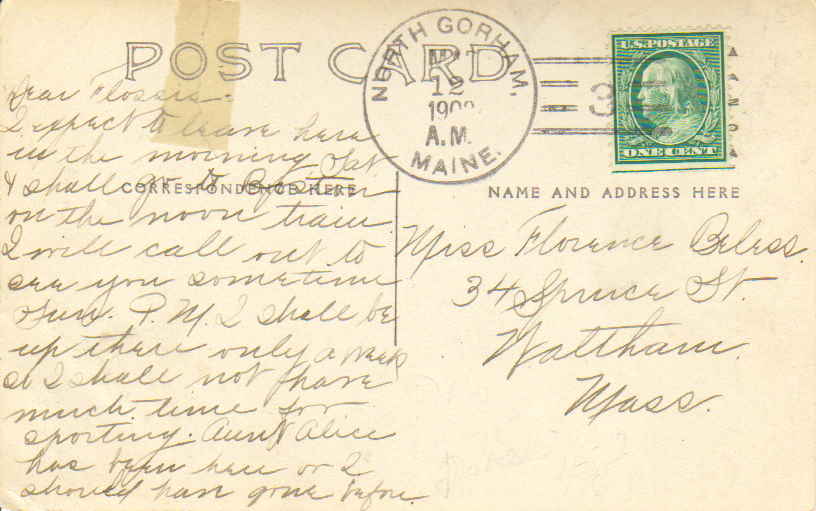 POST CARD
NORTH GORHAM,
12
A.M.
MAINE.
3
U.S. POSTAGE
ONE CENT
CORRESPONDENCE HERE
NAME AND ADDRESS HERE
Dear Flossie-
I expect to leave here
in the morning Sat
& shall go to Boston
on the noon train
I will call out to
see you sometime
Sun. P.M. I shall be
up there only a week
so I shall not have
much time for
sporting. Aunt Alice
has been here or I
should have gone before.
Miss Florence
34 Spruce St.
Waltham.
Mass.